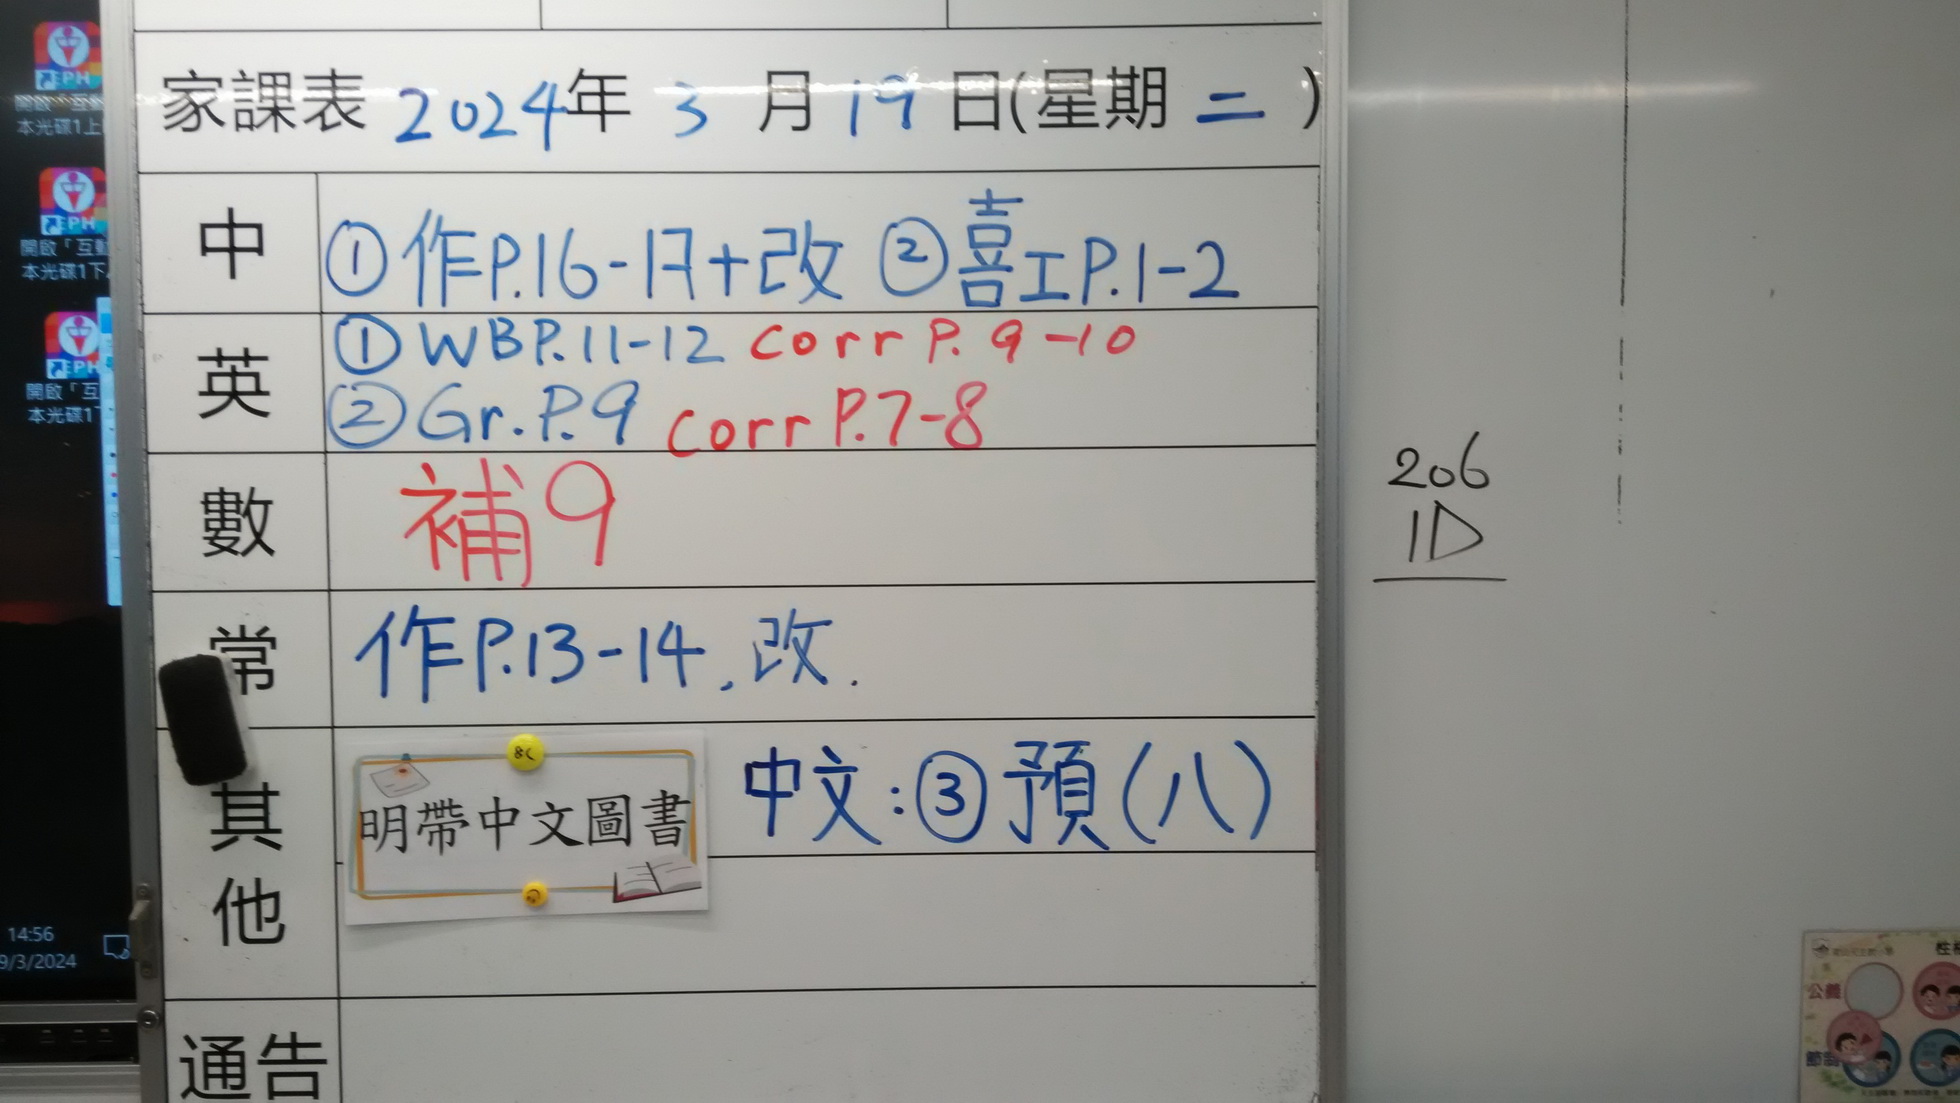 家課表 2024年 3 月 19 日(星期 二 )
中 ①作P.16-17+改 ②喜工P.1-2
英 ①WBP.11-12 corr P. 9-10
②Gr.P.9 corr P.7-8
數 補9
常 作P.13-14,改.
其他 明帶中文圖書 中文:③預(八)
通告
206
1D
EPH
本光碟1上
EPH
開啟「互動
本光碟1下
EPH
開啟「互
本光碟1
14:56
9/3/2024
公義